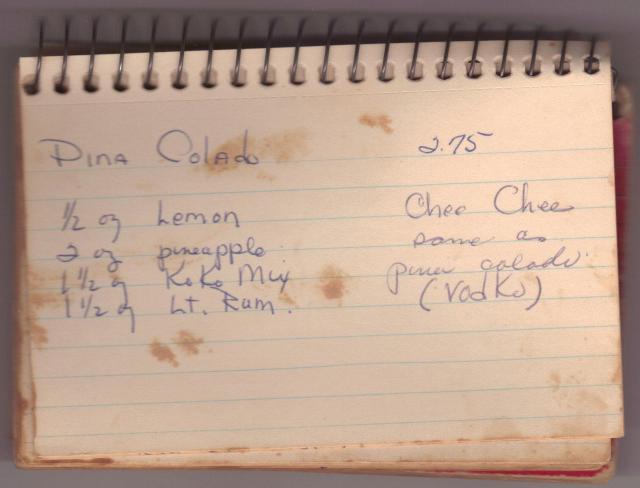 Pina Colado 2.75
1/2 oz Lemon
2 oz pineapple
1 1/2 oz KoKo Mix
1 1/2 oz Lt. Rum.
Chee Chee
same as
pina colado.
(Vodka)